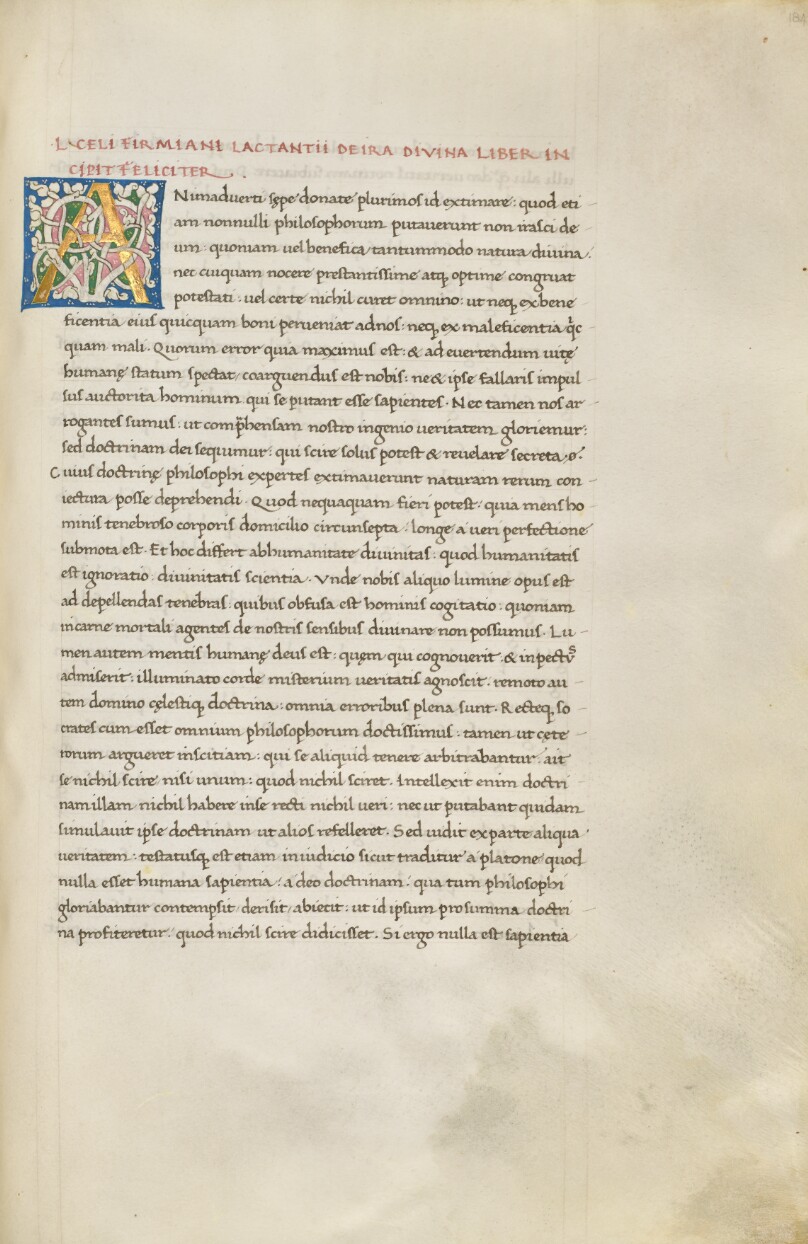 184
LVCELI FIRMIANI LACTANTII DE IRA DIVINA LIBER IN
CIPIT FELICITER .
ANimaduerti sępe donate plurimos id extimare: quod eti
am nonnulli philosophorum putauerunt non irasci de
um: quoniam uel benefica tantummodo natura diuina:
nec cuiquam nocere prestantissime atq; optime congruat
potestati: uel certe nichil curet omnino: ut neq; ex bene
ficentia eius quicquam boni perueniat ad nos: neq; ex maleficentia qc̄
quam mali. Quorum error quia maximus est: & ad euertendum uitę
humanę statum spectat coarguendus est nobis: ne & ipse fallaris impul
sus auctorita hominum qui se putant esse sapientes. Nec tamen nos ar
rogantes sumus: ut comp̄hensam nostro ingenio ueritatem gloriemur:
sed doctrinam dei sequimur: qui scire solus potest & reuelare secreta
Cuius doctrinę philosophi expertes extimauerunt naturam rerum con
iectura posse deprehendi. Quod nequaquam fieri potest: quia mens ho
minis tenebroso corporis domicilio circunsepta: longe a ueri perfectione
submota est. Et hoc differt ab humanitate diuinitas: quod humanitatis
est ignoratio: diuinitatis scientia. Vnde nobis aliquo lumine opus est
ad depellendas tenebras: quibus obfusa est hominis cogitatio: quoniam
in carne mortali agentes de nostris sensibus diuinare non possumus. Lu
men autem mentis humanę deus est: quem qui cognouerit. & in pectus
admiserit: illuminato corde misterium ueritatis agnoscit. remoto au
tem domino cęlestiq; doctrina: omnia erroribus plena sunt. Recteq; so
crates cum esset omnium philosophorum doctissimus: tamen ut cete
rorum argueret inscitiam: qui se aliquid tenere arbitrabantur. ait
se nichil scire nisi unum: quod nichil sciret. Intellexit enim doctri
nam illam nichil habere in se recti nichil ueri: nec ut putabant quidam
simulauit ipse doctrinam ut alios refelleret. Sed uidit ex parte aliqua
ueritatem: testatusq; est etiam in iudicio sicut traditur a platone quod
nulla esset humana sapientia: adeo doctrinam: qua tum philosophi
gloriabantur contempsit derisit abiecit: ut id ipsum pro summa doctri
na profiteretur. quod nichil scire didicisset. Si ergo nulla est sapientia